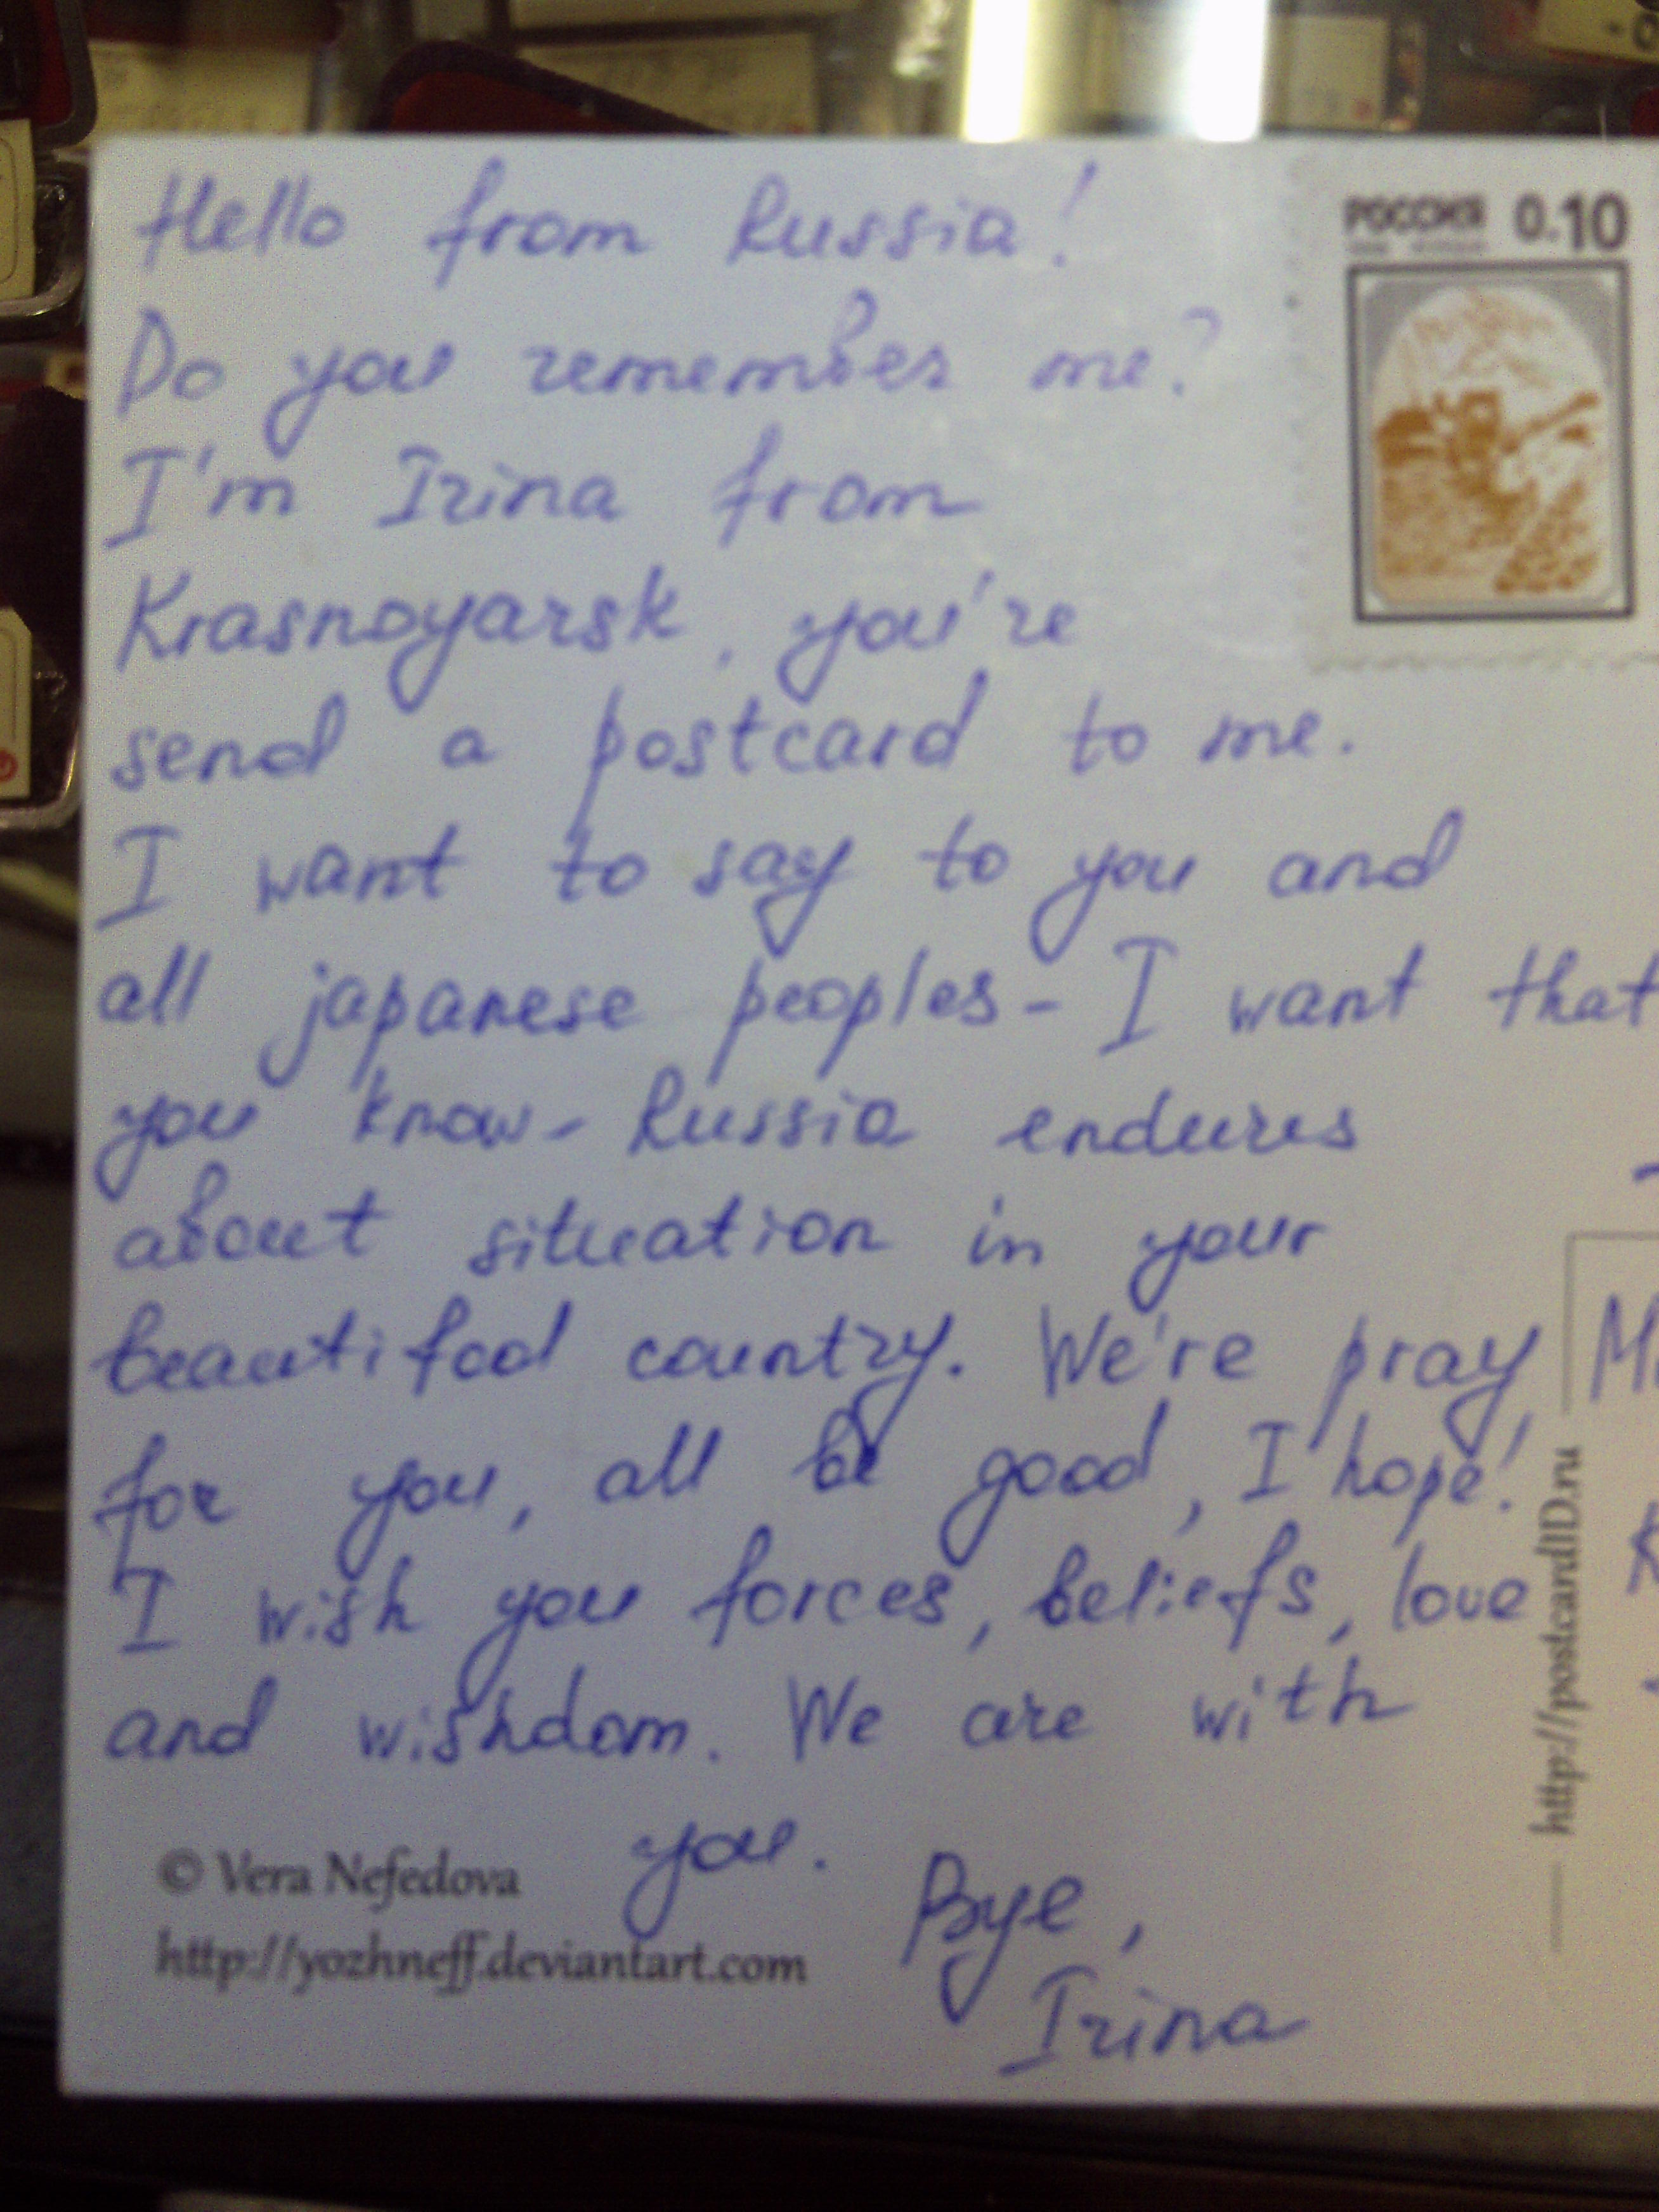 Hello from Russia!
РОССИЯ 0.10
Do you remember me?
I'm Irina from
Krasnoyarsk, you're
send a postcard to me.
I want to say to you and
all japanese peoples - I want that
you know - Russia endures
about situation in your
beautifool country. We're pray
for you, all be good, I hope!
I wish you forces, beliefs, love
and wishdom. We are with
you.
Bye,
Irina
© Vera Nefedova
http://yozhneff.deviantart.com
http://postcardID.ru